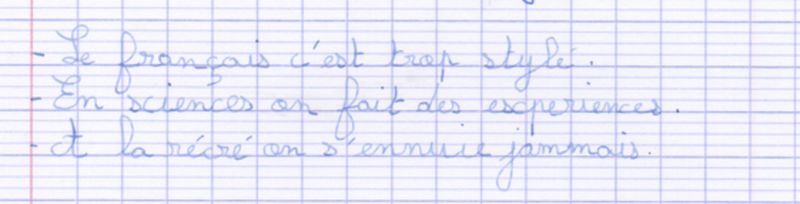 - Le français c'est trop stylé.
- En sciences on fait des experiences.
- A la récré on s'ennuie jammais.